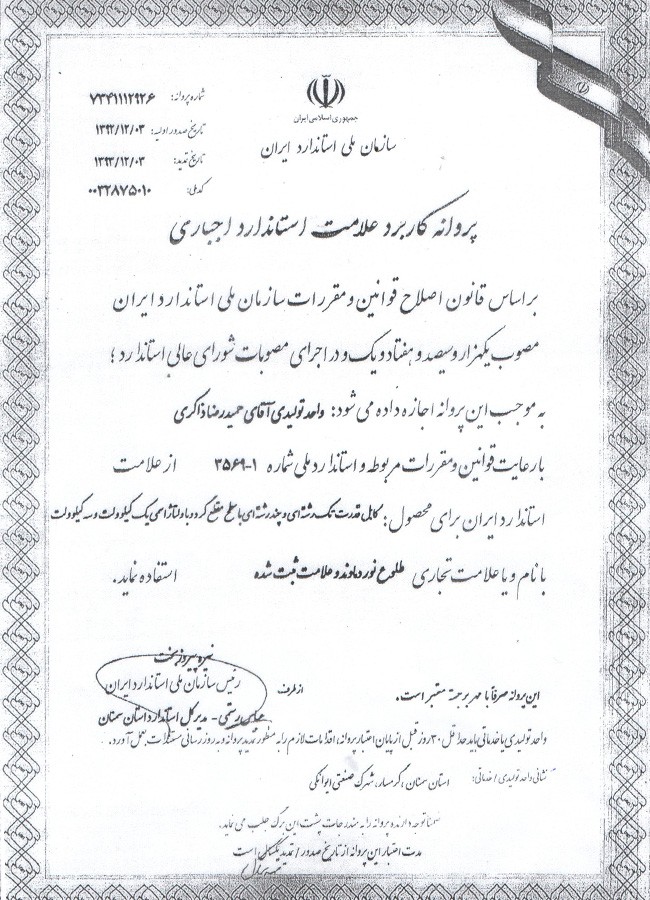 جمهوری اسلامی ایران
سازمان ملی استاندارد ایران
شماره پروانه: ۷۳۴۱۱۱۲۹۲۶
تاریخ صدور اولیه: ۱۳۹۲/۱۲/۰۳
تاریخ تمدید: ۱۳۹۳/۱۲/۰۳
کد ملی: ۰۰۳۲۸۷۵۰۱۰
پروانه کاربرد علامت استاندارد اجباری
بر اساس قانون اصلاح قوانین و مقررات سازمان ملی استاندارد ایران
مصوب یکهزار و سیصد و هفتاد و یک و در اجرای مصوبات شورای عالی استاندارد؛
به موجب این پروانه اجازه داده می شود: واحد تولیدی آقای حمیدرضا ذاکری
با رعایت قوانین و مقررات مربوطه و استاندارد ملی شماره ۳۵۶۹-۱ از علامت
استاندارد ایران برای محصول: کابل قدرت تک رشته ای و چند رشته ای با سطح مقطع گرد و با ولتاژ اسمی یک کیلوولت و سه کیلوولت
با نام و یا علامت تجاری طلوع نور دماوند و علامت ثبت شده استفاده نماید.
نیره پیروزبخت
رئیس سازمان ملی استاندارد ایران
این پروانه صرفا با مهر برجسته معتبر است.
از طرف
عباس رستمی - مدیر کل استاندارد استان سمنان
واحد تولیدی یا خدماتی باید حداقل ۳۰ روز قبل از پایان اعتبار پروانه، اقدامات لازم را به منظور تمدید پروانه و به روز رسانی مستندات بعمل آورد.
نشانی واحد تولیدی / خدماتی: استان سمنان، گرمسار، شهرک صنعتی ایوانکی
ضمنا توجه دارنده پروانه را به مندرجات پشت این برگ جلب می نماید.
مدت اعتبار این پروانه از تاریخ صدور / تمدید یکسال است